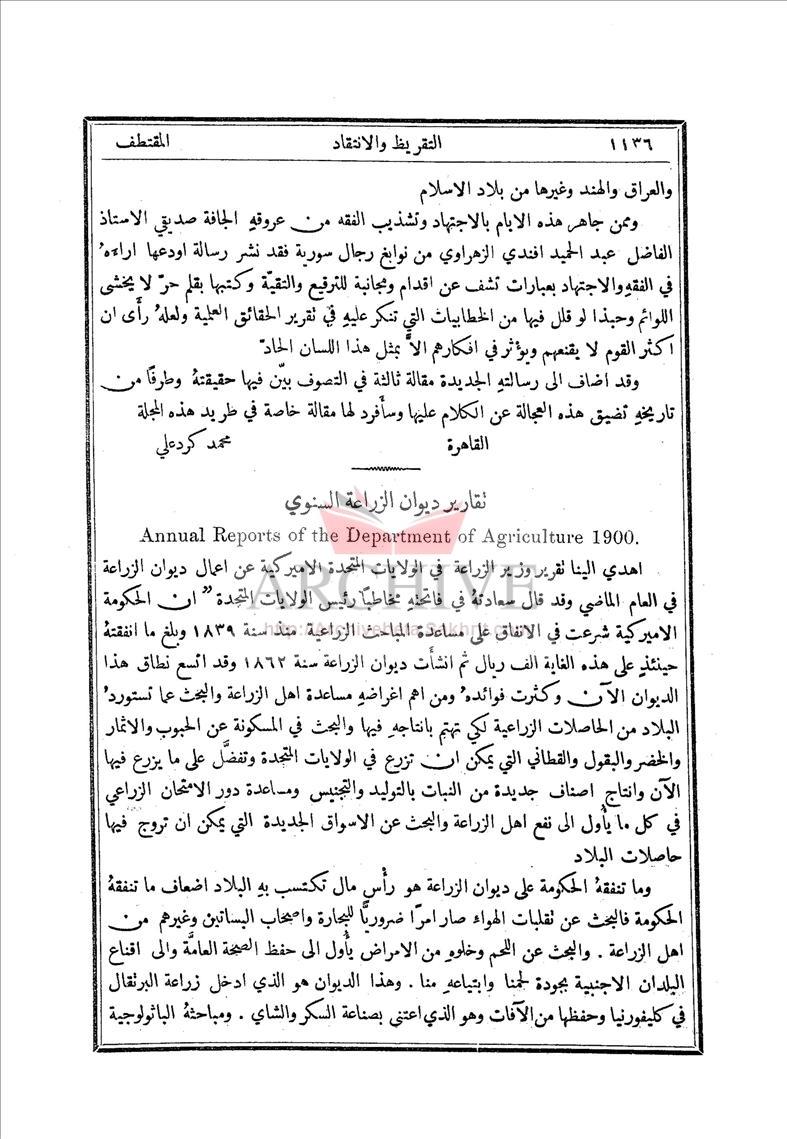 ١١٣٦ التقريظ والانتقاد المقتطف
والعراق والهند وغيرها من بلاد الاسلام
وممن جاهر هذه الايام بالاجتهاد وتشذيب الفقه من عروقهِ الجافة صديقي الاستاذ
الفاضل عبد الحميد افندي الزهراوي من نوابغ رجال سورية فقد نشر رسالة اودعها اراءهُ
في الفقهِ والاجتهاد بعبارات تشف عن اقدام ومجانبة للترقيع والتقيّة وكتبها بقلم حرّ لا يخشى
اللوائم وحبذا لو قلل فيها من الخطابيات التي تنكر عليهِ في تقرير الحقائق العلمية ولعلهُ رأى ان
اكثر القوم لا يقنعهم ويؤثر في افكارهم الاَّ بمثل هذا اللسان الحادّ
وقد اضاف الى رسالتهِ الجديدة مقالة ثالثة في التصوف بيّن فيها حقيقتهُ وطرفًا من
تاريخهِ تضيق هذه العجالة عن الكلام عليها وسأفرد لها مقالة خاصة في طريد هذه المجلة
القاهرة محمد كرد علي
تقارير ديوان الزراعة السنوي
Annual Reports of the Department of Agriculture 1900.
اهدي الينا تقرير وزير الزراعة في الولايات المتحدة الاميركية عن اعمال ديوان الزراعة
في العام الماضي وقد قال سعادتهُ في فاتحتهِ مخاطبًا رئيس الولايات المتحدة "ان الحكومة
الاميركية شرعت في الانفاق على مساعدة المباحث الزراعية منذ سنة ١٨٣٩ وبلغ ما انفقتهُ
حينئذٍ على هذه الغاية الف ريال ثم انشأت ديوان الزراعة سنة ١٨٦٢ وقد اتسع نطاق هذا
الديوان الآن وكثرت فوائدهُ ومن اهم اغراضهِ مساعدة اهل الزراعة والبحث عما تستوردهُ
البلاد من الحاصلات الزراعية لكي تهتم بانتاجهِ فيها والبحث في المسكونة عن الحبوب والاثمار
والخضر والبقول والقطاني التي يمكن ان تزرع في الولايات المتحدة وتفضَّل على ما يزرع فيها
الآن وانتاج اصناف جديدة من النبات بالتوليد والتجنيس ومساعدة دور الامتحان الزراعي
في كل ما يأول الى نفع اهل الزراعة والبحث عن الاسواق الجديدة التي يمكن ان تروج فيها
حاصلات البلاد
وما تنفقهُ الحكومة على ديوان الزراعة هو رأس مال تكتسب بهِ البلاد اضعاف ما تنفقهُ
الحكومة فالبحث عن تقلبات الهواء صار امرًا ضروريًّا للبحارة واصحاب البساتين وغيرهم من
اهل الزراعة . والبحث عن اللحم وخلوهِ من الامراض يأول الى حفظ الصحة العامَّة والى اقناع
البلدان الاجنبية بجودة لحمنا وابتياعهِ منا . وهذا الديوان هو الذي ادخل زراعة البرتقال
في كليفورنيا وحفظها من الآفات وهو الذي اعتنى بصناعة السكر والشاي . ومباحثهُ الباثولوجية
ARCHIVE
http://Archivebeta.Sakhrit.com